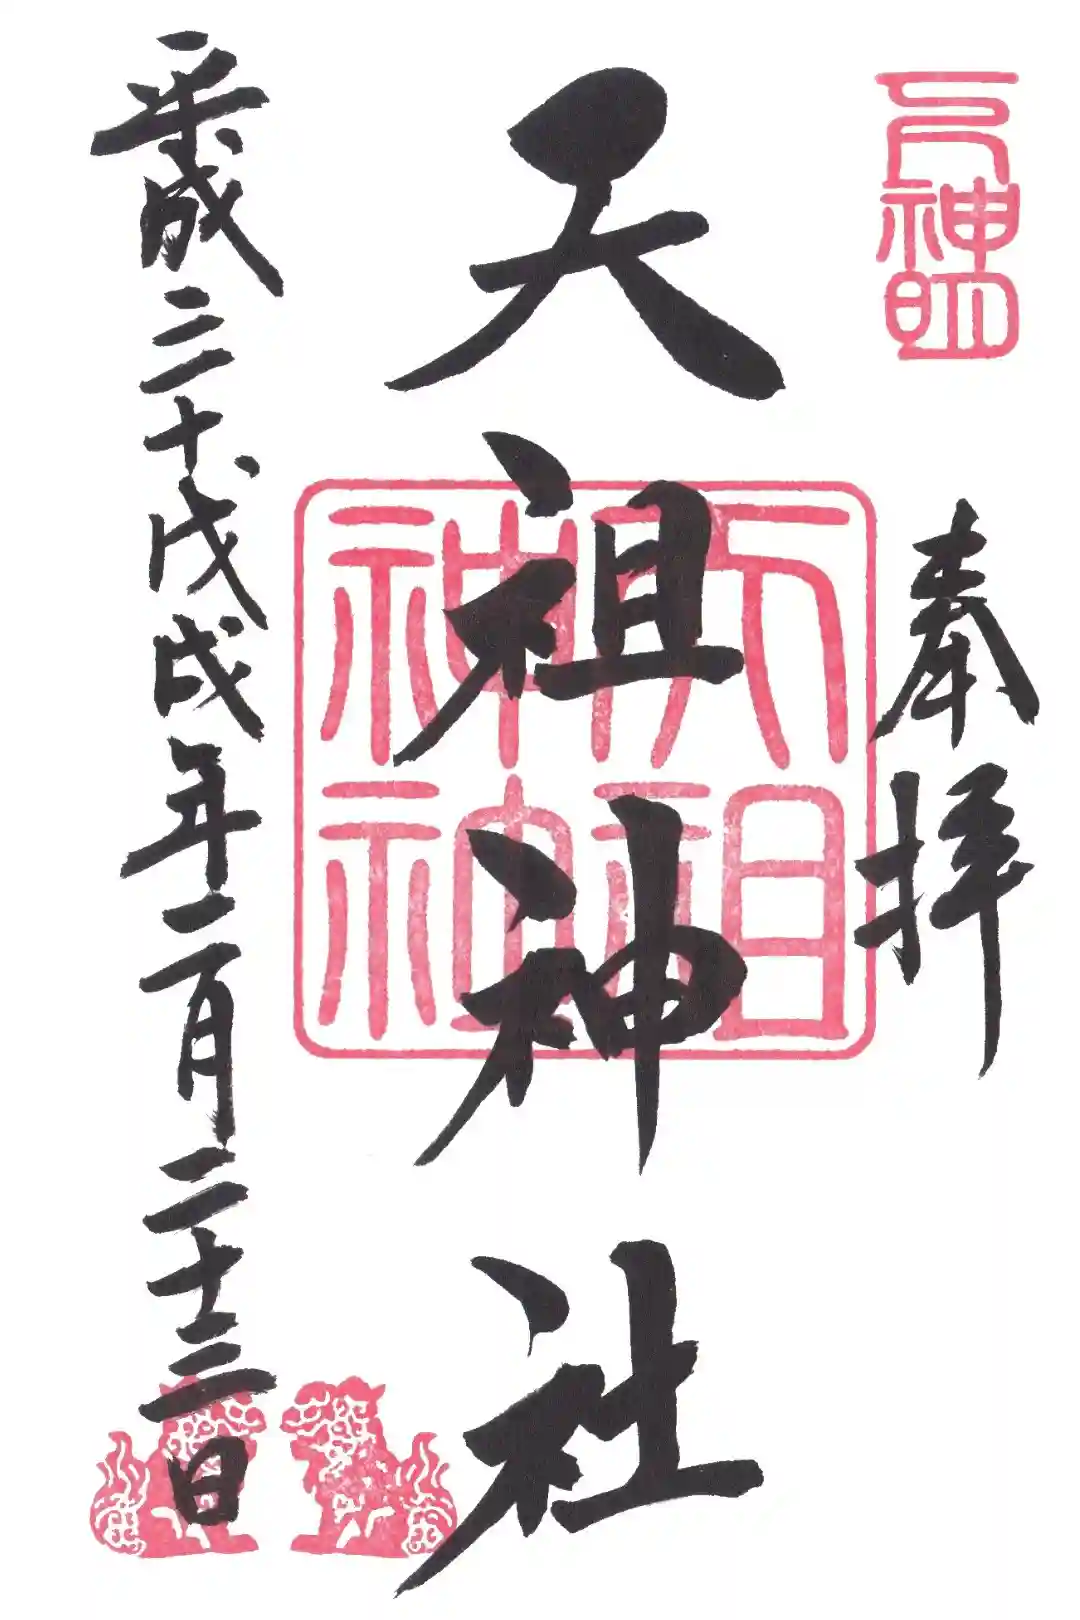 下神明
奉拝
天祖神社
天祖神社
平成三十戊戌年二月二十三日